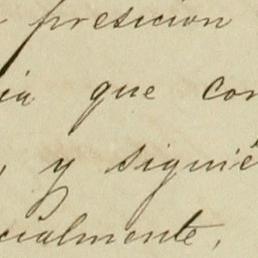 presicion
ia que con
, y siguié
cialmente,